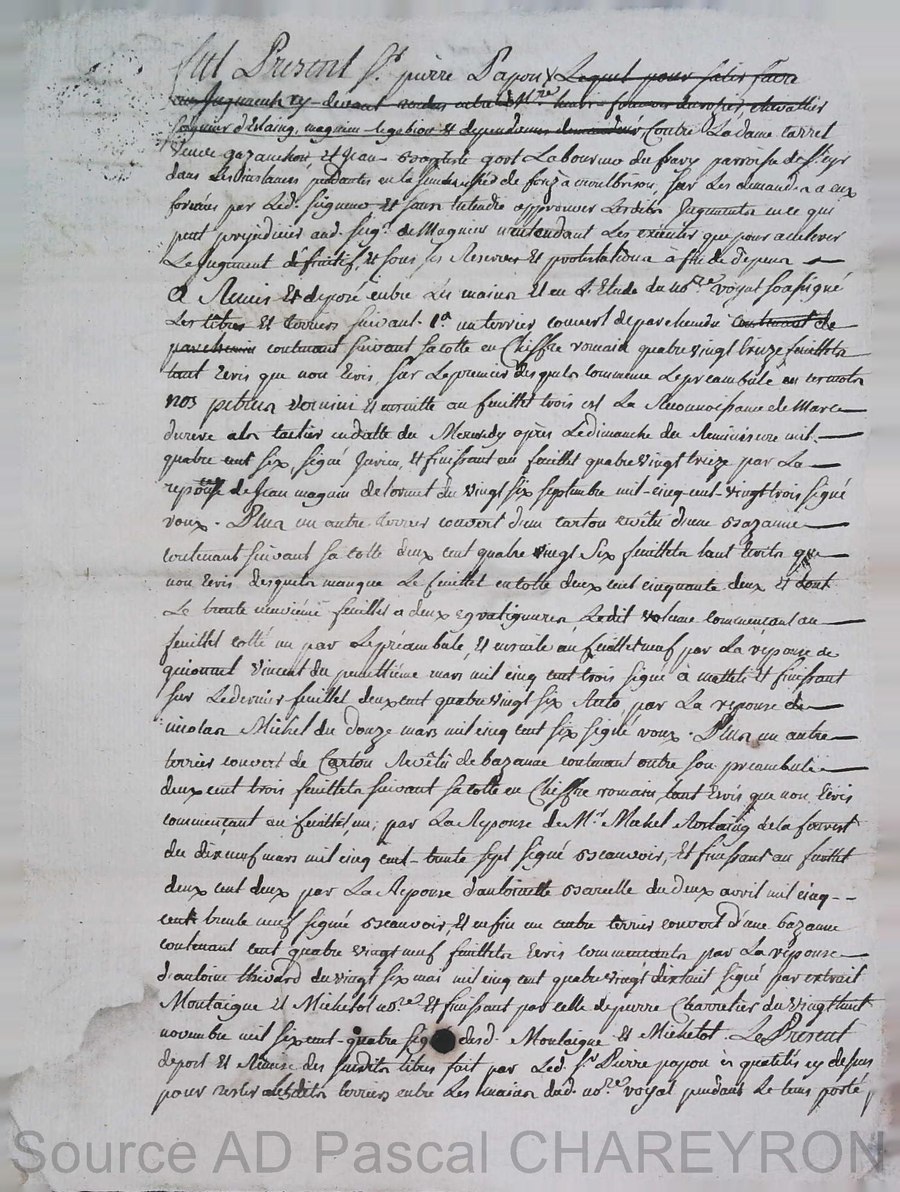 fut Present Sr pierre Papon Lequel pour satisfaire
au Jugement cy-devant rendu entre Mre chevallier
seigneur d'Estaing, magnieu le gabion et dependences demandeur Contre La dame tarret
veuve gazanchon et Jean Baptiste gort Laboureur du fravy parroisse de St cyr
dans Les Instances pendantes en la senechaussée de forez a montbrison, sur Les demandes a eux
formées par Led. seigneur et sans Entendre approuver Lesdits Jugements en ce qui
peut prejudicier aud. seigr de Magnieu n'entendant Les executer que pour achever
Le Jugement deffinitif, et sous ses Reserves et protestations a fin de depens
a Remis et deposé entre Les mains et en L'Etude du nore voyal soussigné
Les titres et terriers suivant. 1° un terrier couvert de parchemin contenant de
parchemin contenant suivant sa cotte en Chiffre romain quatre vingt treize feuillets
tant Ecris que non Ecris, sur Le premier desquels commence Le preambule en ces mots
nos petrus vernini et ensuitte au feuillet trois est La Reconnoissance de Marc
durere als tachier en datte du Mercredy après Le dimanche du Reminiscere mil
quatre cent six, signé Jurieu, et finissant au feuillet quatre vingt treize par La
reponse de Jean magnin de lornut du vingt six septembre mil-cinq-cent-vingt trois signé
voux. Plus un autre terrier couvert d'un carton revêtu d'une Bazanne
contenant suivant sa cotte deux cent quatre vingt six feuillets tant Ecrits que
non Ecris desquels manque Le feuillet en cotte deux cent cinquante deux et dont
Le trente neuvieme feuillet a deux egratignures, Ledit volume commençant au
feuillet cotté un par Le préambule, et ensuite au feuillet neuf par La réponse de
guionnet vincent du penultième mars mil cinq cent trois signé à matteti et finissant
sur Le dernier feuillet deux cent quatre vingt six Recto, par La reponse de
nicolas Michel du Douze mars mil cinq cent six signé voux. Plus un autre
terrier couvert de Carton Revêtû de bazanne contenant outre son preambule
deux cent trois feuillets suivant sa cotte en Chiffre romain, tant Ecris que non Ecris
commençant au feuillet, un, par La Reponse de Mr Michel Rostaing de la fouvert
du dix neuf mars mil cinq cent-trente sept signé Beauvoir, et finissant au feuillet
deux cent deux par La Reponse d'antoinette Bareille du deux avril mil cinq-
cent trente neuf signé Beauvoir, et enfin un autre terrier couvert d'une bazanne
contenant cent quatre vingt neuf feuillets Ecris commencants par La réponse
d'antoine thivard du vingt six mai mil cinq cent quatre vingt dix huit signé par extrait
Montaigne et Michelot nores et finissant par celle de pierre Charretier du vingt huit
novembre mil six cent-quatre signé desd. Montaigne et Michelot. Le Present
depost et Remise des susdits titres fait par Led. Sr Pierre papon ès qualités cy dessus
pour rester Lesdits terriers entre Les mains dud. nore voyal pendant Le tems porté
Source AD Pascal CHAREYRON